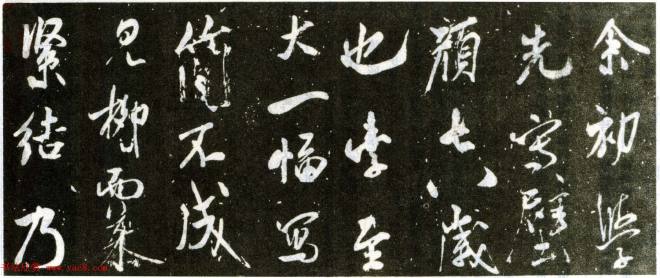 余初學
先寫壁
顏七八歲
也字至
大一幅寫
簡不成
見柳而慕
緊結乃
www.yac8.com